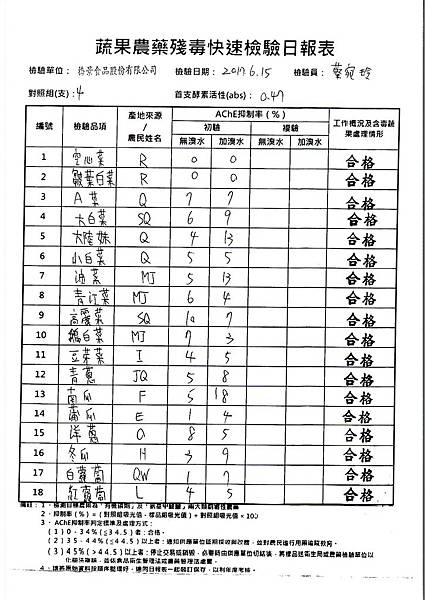 蔬果農藥殘毒快速檢驗日報表
檢驗單位： 食品股份有限公司 檢驗日期： 2017.6.15 檢驗員： 葉宛玲
對照組(支)：4 首支酵素活性(abs)： 0.47
編號 檢驗品項 產地來源/農民姓名 AChE抑制率(%) 工作概況及含毒蔬果處理情形
初驗 複驗
無溴水 加溴水 無溴水 加溴水
1 空心菜 R 0 0 合格
2 皺葉白菜 R 0 0 合格
3 A菜 Q 7 7 合格
4 大白菜 SQ 6 9 合格
5 大陸妹 Q 4 13 合格
6 小白菜 Q 5 5 合格
7 油菜 MJ 5 13 合格
8 青江菜 MJ 6 4 合格
9 高麗菜 SQ 10 7 合格
10 白菜 MJ 7 3 合格
11 豆芽菜 I 4 5 合格
12 青蔥 JQ 5 8 合格
13 南瓜 F 5 18 合格
14 瓜 E 1 4 合格
15 洋蔥 8 5 合格
16 冬瓜 H 3 9 合格
17 白蘿蔔 QW 1 7 合格
18 紅蘿蔔 L 4 5 合格
2．抑制率(%)＝(對照組吸光值－樣品組吸光值)÷對照組吸光值×100
3．AChE抑制率判定標準及處理方式：
(1)0-34%(≦34.5)者：合格。
(2)35-44%(≦44.5)以上者：通知供應單位延期採收與改善，並對農民進行用藥追蹤教育。
(3)45%(>44.5)以上者：停止交易或銷毀，必要時由供應單位切結後，再樣品送衛生局或農藥檢驗單位以